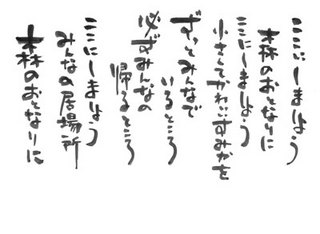 ここにしましょう
森のおとなりに
ここにしましょう
小さくてかわいいすみかを
ずっとみんなで
いるところ
必ずみんなの
帰るところ
ここにしましょう
みんなの居場所
森のおとなりに